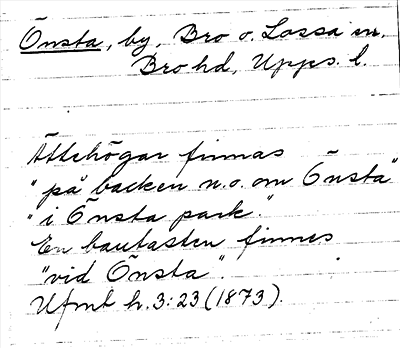 Önsta, by, Bro o. Lossa sn,
Bro hd, Upps. l.
Ättehögar finnas
"på backen n.o. om Önsta"
"i Önsta park".
En bautasten finnes
"vid Önsta".
Ufmt h. 3:23 (1873).